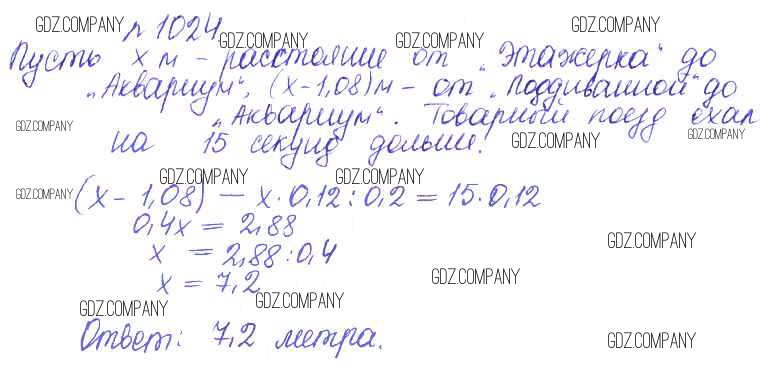 GDZ.COMPANY GDZ.COMPANY
№ 1024 GDZ.COMPANY GDZ.COMPANY
Пусть x м - расстояние от "Этажерка" до
"Аквариум", (x-1,08)м - от "Поддиванной" до
"Аквариум". Товарный поезд ехал
GDZ.COMPANY GDZ.COMPANY GDZ.COMPANY
на 15 секунд дольше.
GDZ.COMPANY GDZ.COMPANY GDZ.COMPANY
(x - 1,08) - x·0,12:0,2 = 15·0,12
0,4x = 2,88
GDZ.COMPANY
x = 2,88:0,4
GDZ.COMPANY
x = 7,2
GDZ.COMPANY GDZ.COMPANY
Ответ: 7,2 метра.
GDZ.COMPANY